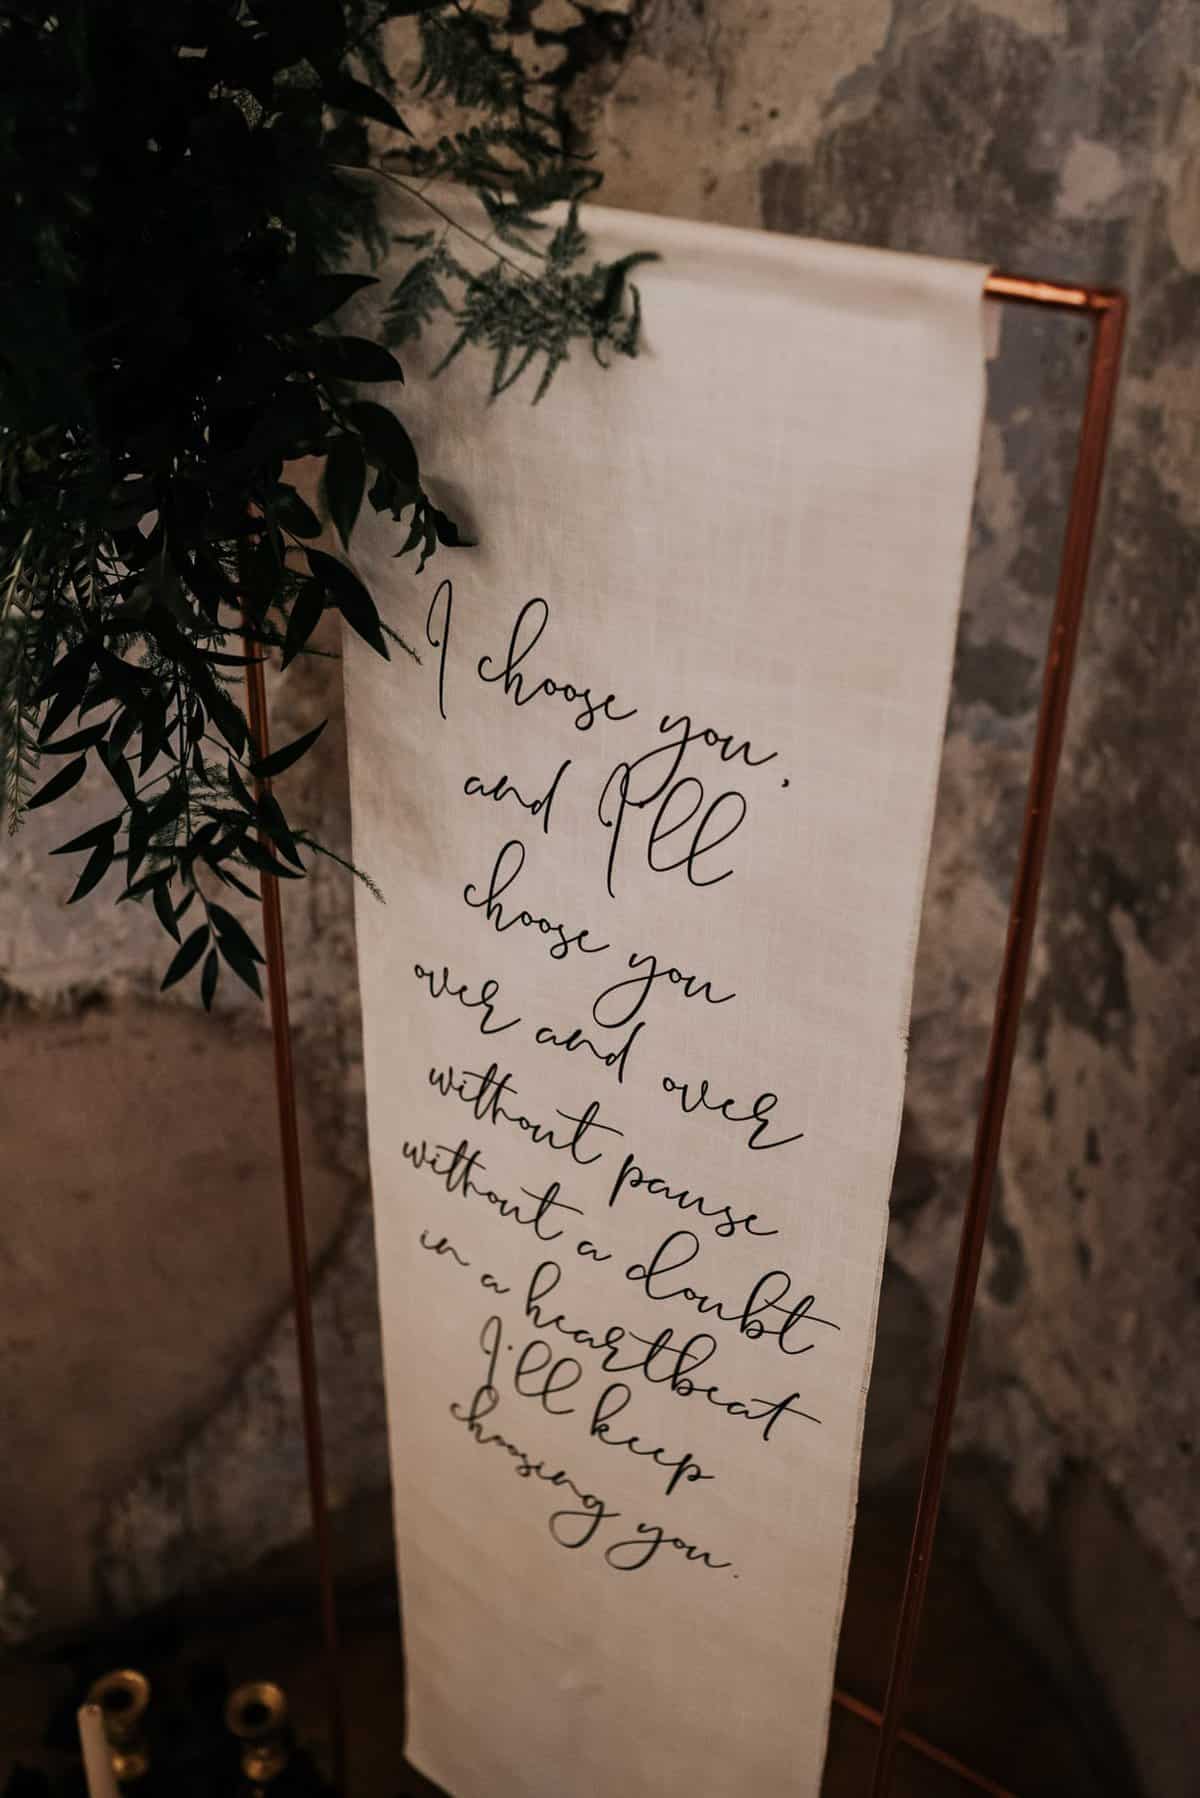 I choose you,
and I'll
choose you
over and over
without pause
without a doubt
in a heartbeat
I'll keep
choosing you.